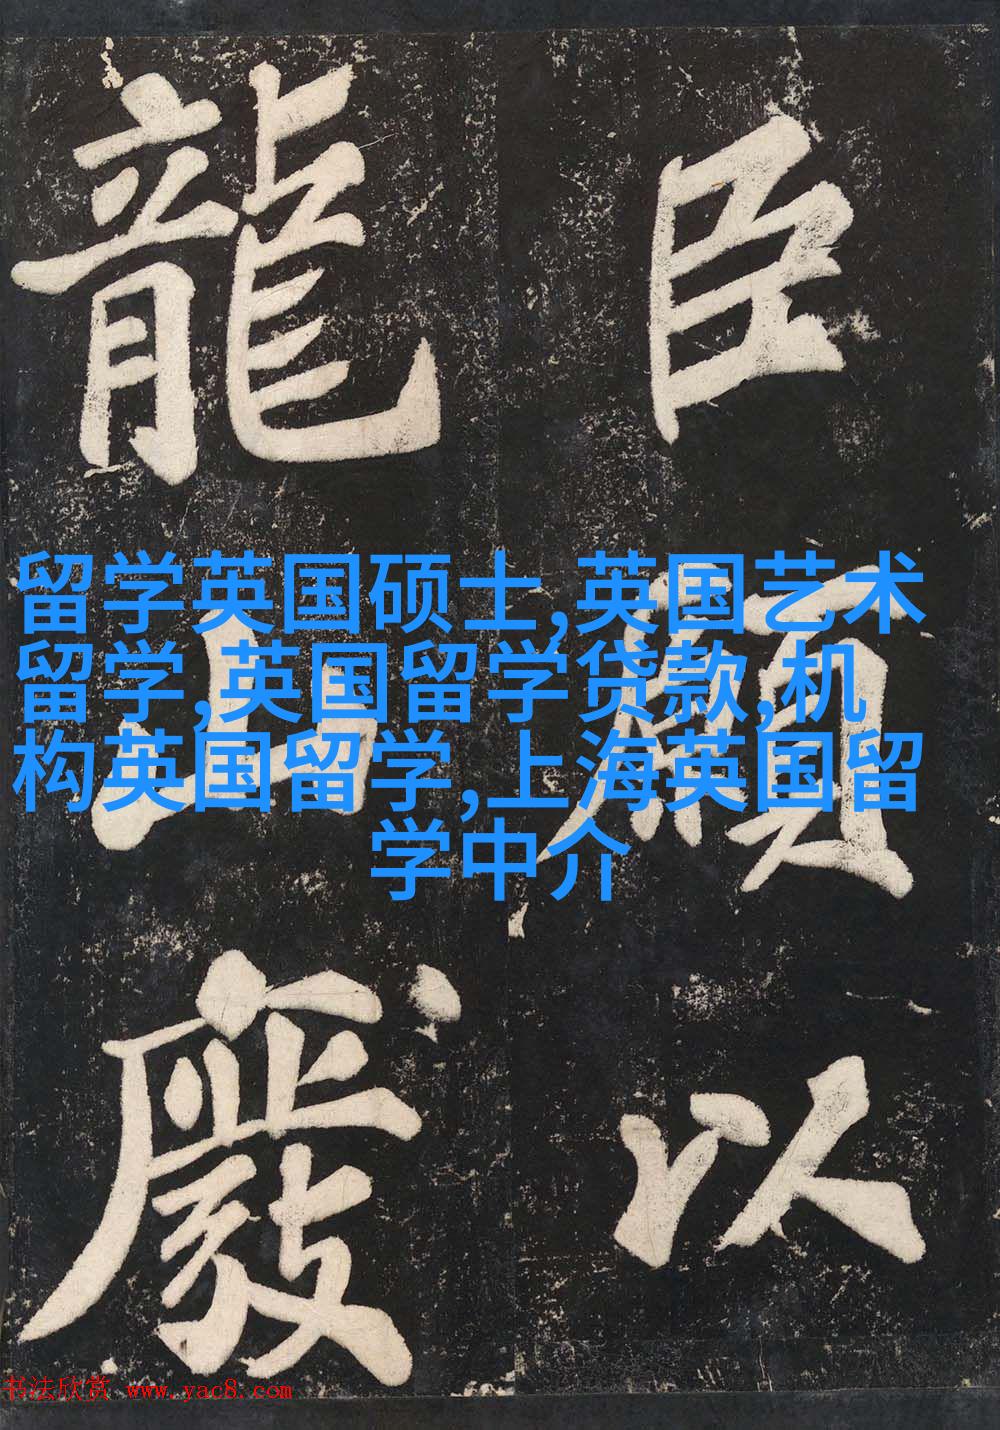 臣願以
龍山
留学英国硕士,英国艺术
留学,英国留学贷款,机
构英国留学,上海英国留
学中介
书法欣赏 www.yac8.com